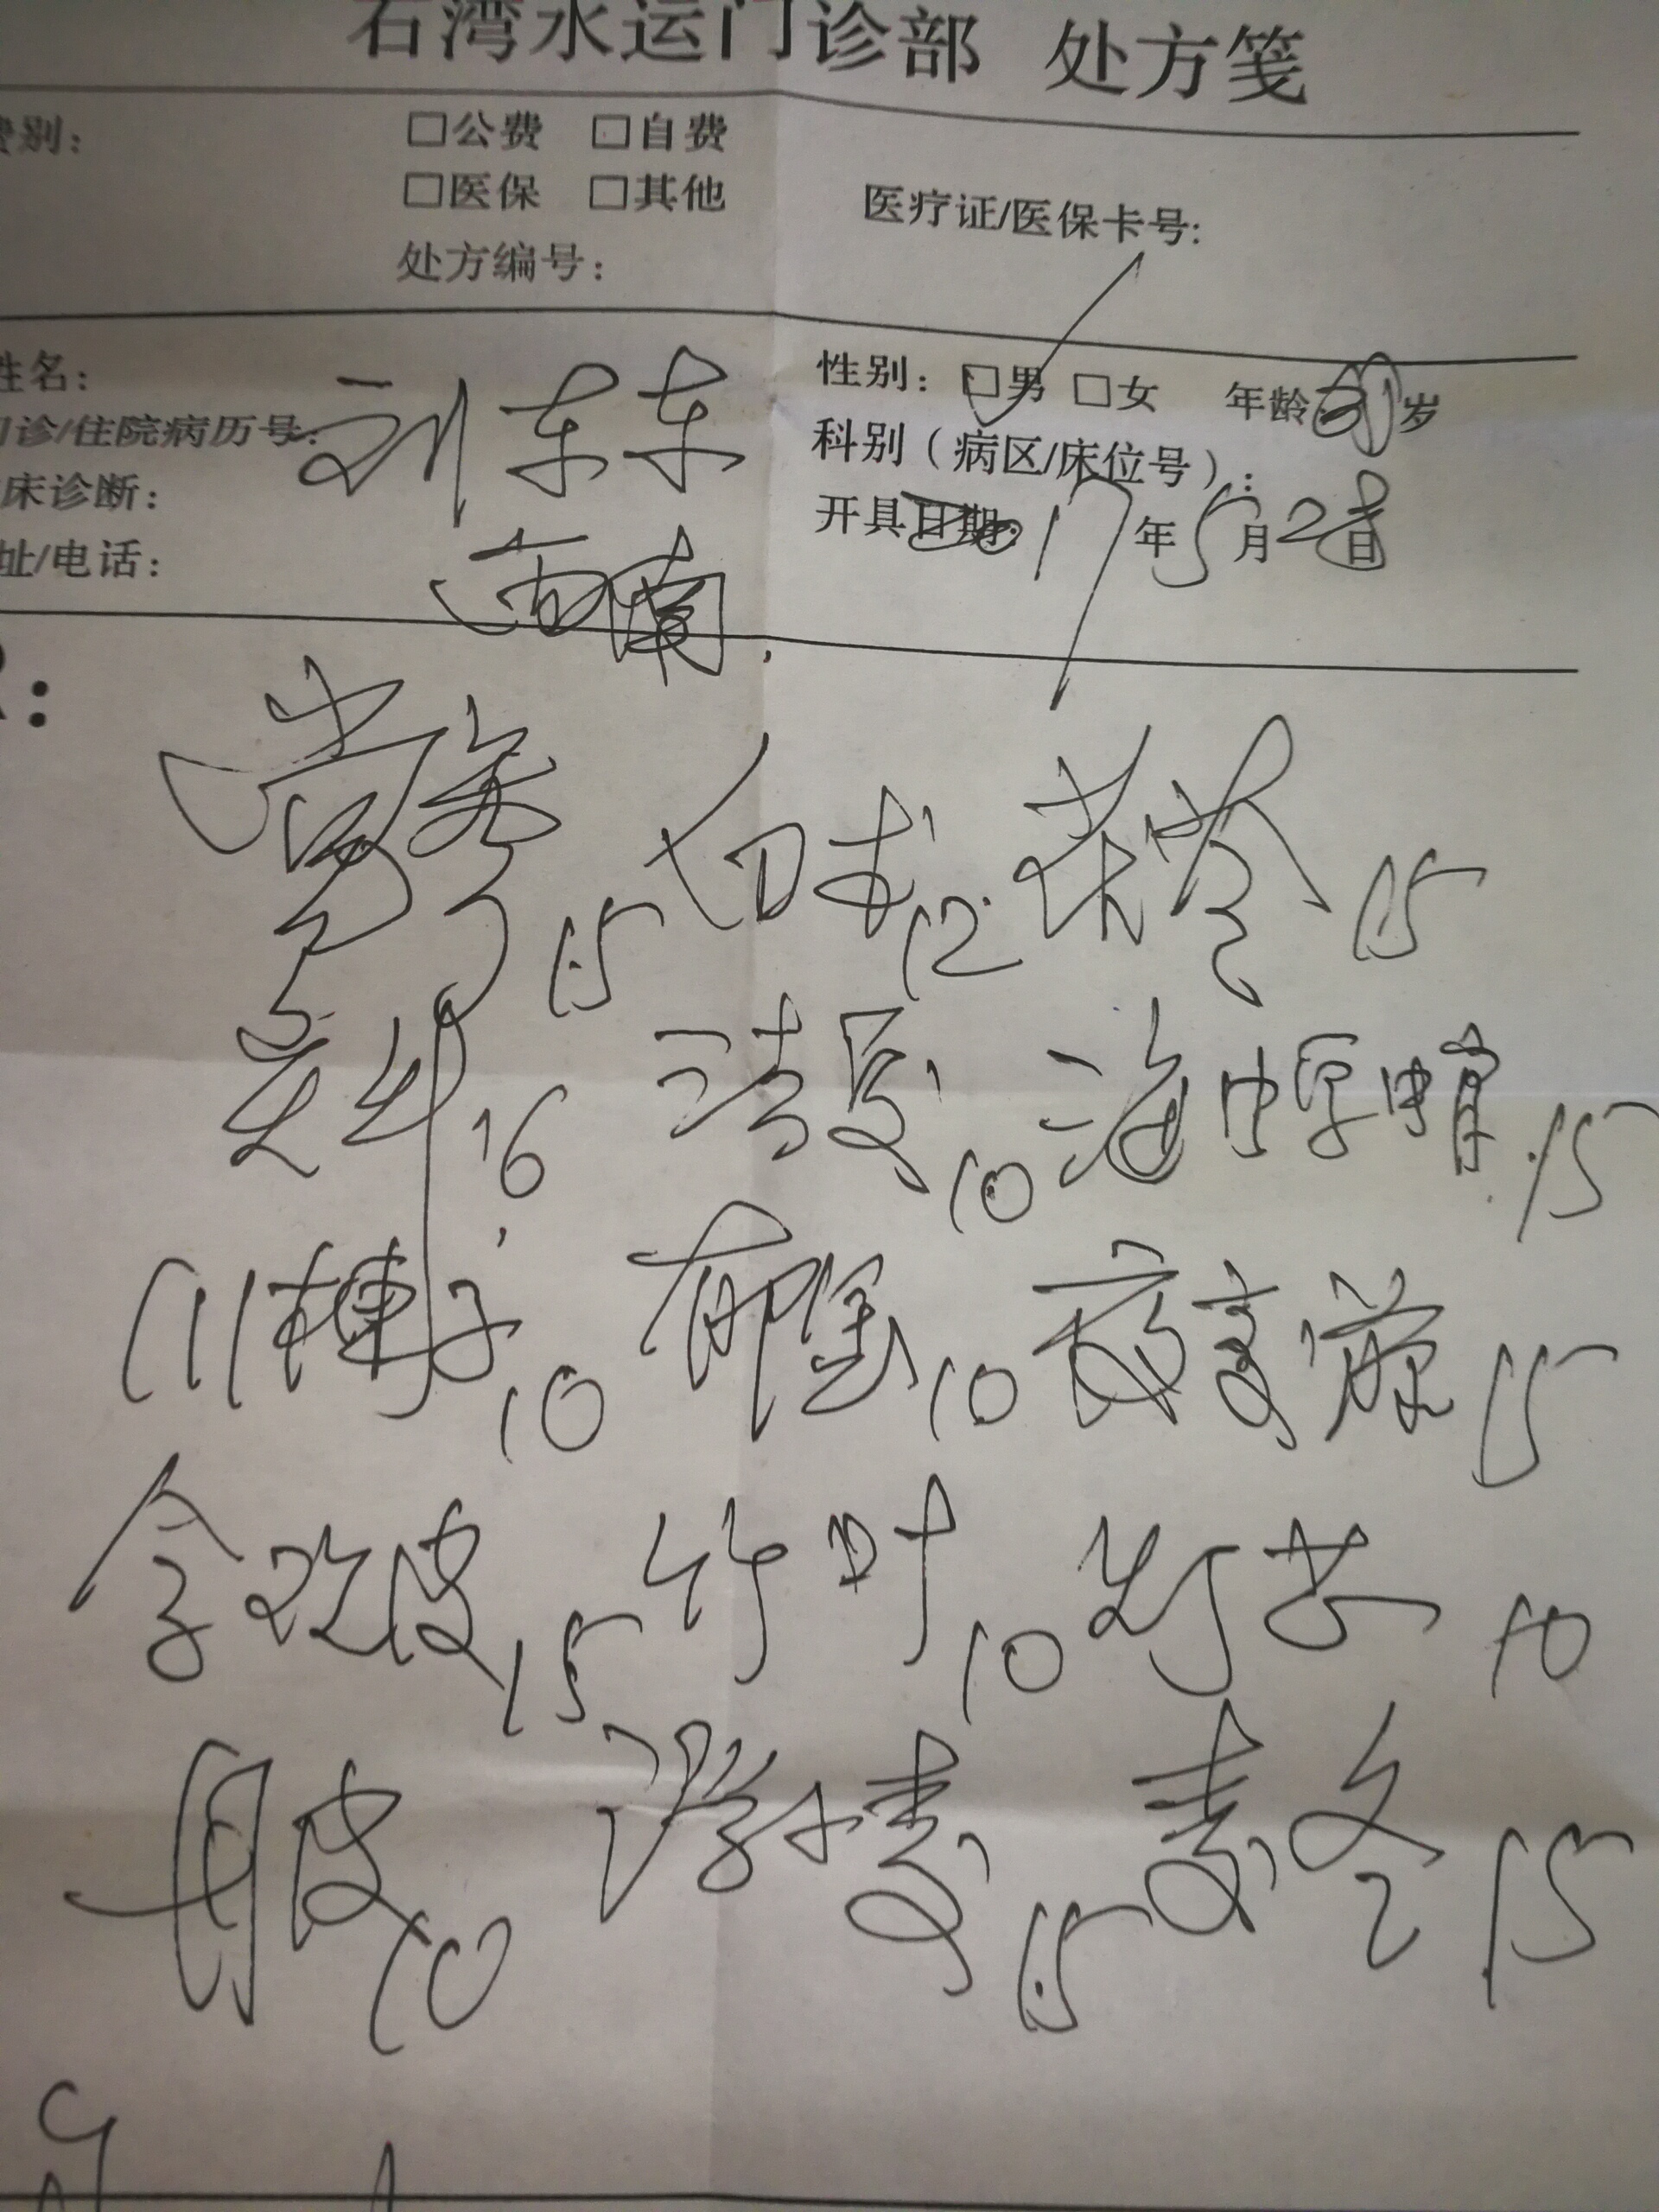 石湾水运门诊部 处方笺
费别: □公费 □自费
□医保 □其他 医疗证/医保卡号:
处方编号:
姓名: 刘东东 性别: □男 □女 年龄 岁
门诊/住院病历号: 科别(病区/床位号):
临床诊断: 开具日期: 17年5月28日
址/电话: 西南
党参15 白术12 茯苓15
黄芩16 法夏10 海螵蛸15
川楝子10 郁金10 夜交藤15
合欢皮15 竹叶10 灯芯10
丹皮10 浮小麦15 麦冬15